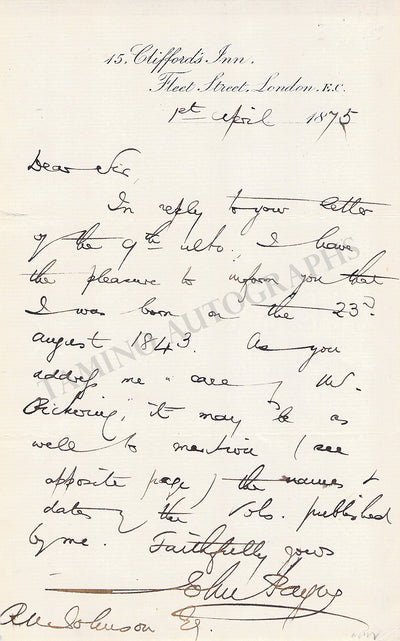 15. Clifford's Inn.
Fleet Street. London. E.C.
1st April 1875
Dear Sir,
In reply to your letter
of the 9th ulto., I have
the pleasure to inform you that
I was born on the 23rd
August 1843. As you
address me "care of Mr.
Pickering," it may be as
well to mention (see
opposite page) the names &
dates of the vols. published
by me. Faithfully yours
John Payne
Johnson Esq.
TAMINO AUTOGRAPHS